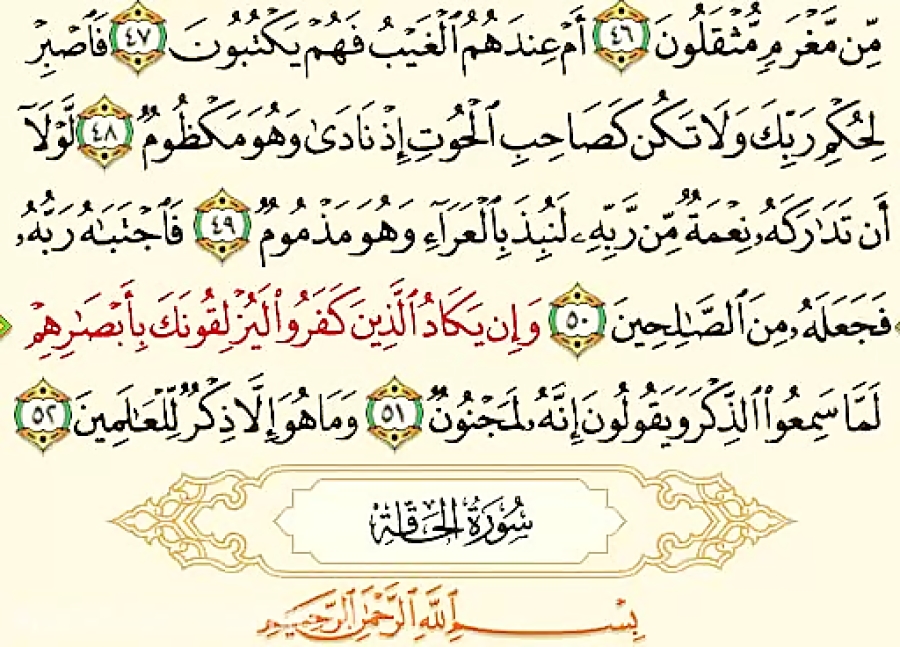 مِّن مَّغْرَمٍ مُّثْقَلُونَ ٤٦ أَمْ عِندَهُمُ ٱلْغَيْبُ فَهُمْ يَكْتُبُونَ ٤٧ فَٱصْبِرْ
لِحُكْمِ رَبِّكَ وَلَا تَكُن كَصَاحِبِ ٱلْحُوتِ إِذْ نَادَىٰ وَهُوَ مَكْظُومٌ ٤٨ لَّوْلَآ
أَن تَدَٰرَكَهُۥ نِعْمَةٌ مِّن رَّبِّهِۦ لَنُبِذَ بِٱلْعَرَآءِ وَهُوَ مَذْمُومٌ ٤٩ فَٱجْتَبَٰهُ رَبُّهُۥ
فَجَعَلَهُۥ مِنَ ٱلصَّٰلِحِينَ ٥٠ وَإِن يَكَادُ ٱلَّذِينَ كَفَرُوا۟ لَيُزْلِقُونَكَ بِأَبْصَٰرِهِمْ
لَمَّا سَمِعُوا۟ ٱلذِّكْرَ وَيَقُولُونَ إِنَّهُۥ لَمَجْنُونٌ ٥١ وَمَا هُوَ إِلَّا ذِكْرٌ لِّلْعَٰلَمِينَ ٥٢
سُورَةُ الحَاقَّةِ
بِسْمِ ٱللَّهِ ٱلرَّحْمَٰنِ ٱلرَّحِيمِ